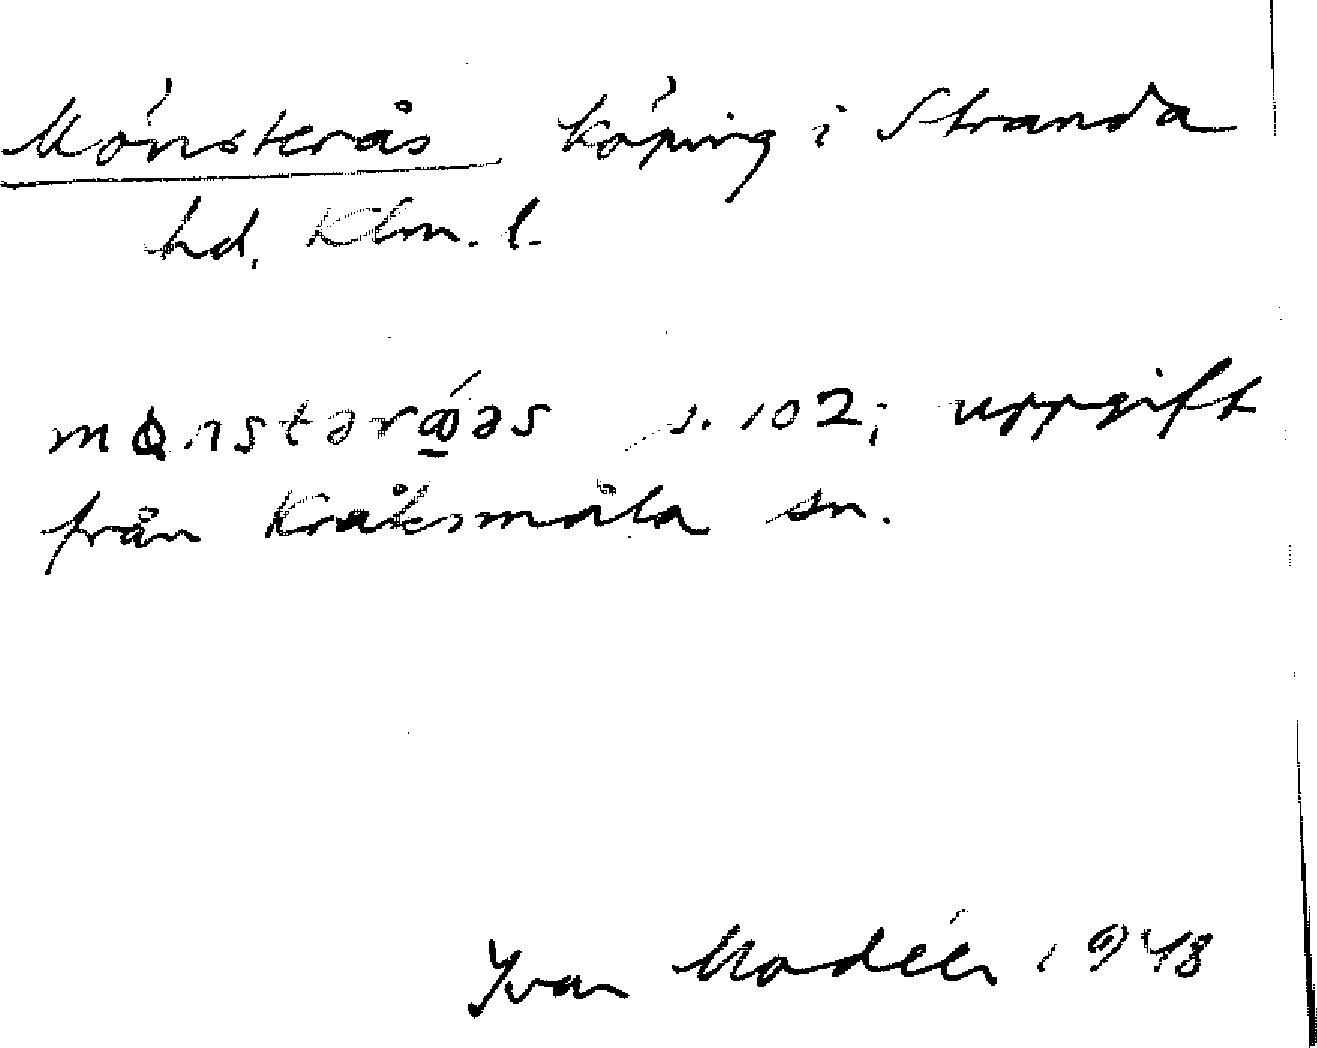 Mönsterås köping i Stranda
hd. Klm. l.
s. 102; uppgift
från Kråksmåla sn.
Yvar Modéer 1948